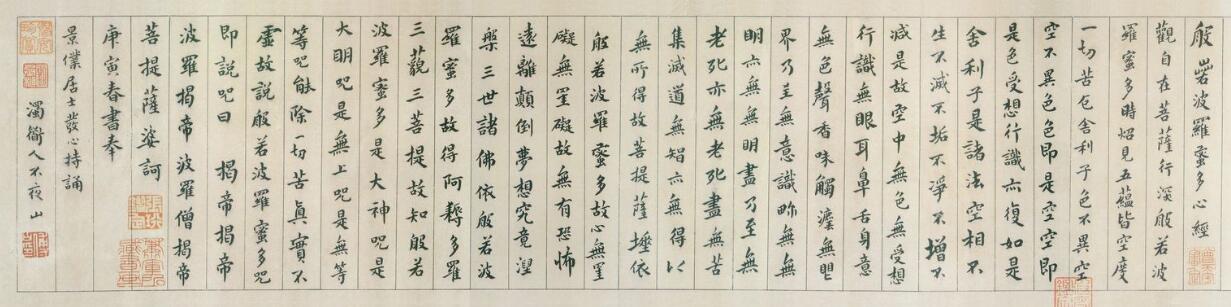 般若波羅蜜多心經
觀自在菩薩行深般若波
羅蜜多時炤見五蘊皆空度
一切苦厄舍利子色不異空
空不異色色即是空空即
是色受想行識亦復如是
舍利子是諸法空相不
生不滅不垢不淨不增不
減是故空中無色無受想
行識無眼耳鼻舌身意
無色聲香味觸灋無眼
界乃至無意識界無無
明亦無無明盡乃至無
老死亦無老死盡無苦
集滅道無智亦無得以
無所得故菩提薩埵依
般若波羅蜜多故心無罣
礙無罣礙故無有恐怖
遠離顛倒夢想究竟涅
槃三世諸佛依般若波
羅蜜多故得阿耨多羅
三藐三菩提故知般若
波羅蜜多是大神咒是
大明咒是無上咒是無等
等咒能除一切苦真實不
虛故說般若波羅蜜多咒
即說咒曰 揭帝揭帝
波羅揭帝波羅僧揭帝
菩提薩婆訶
庚寅春書奉
景僕居士發心持誦
濁衜人不夜山